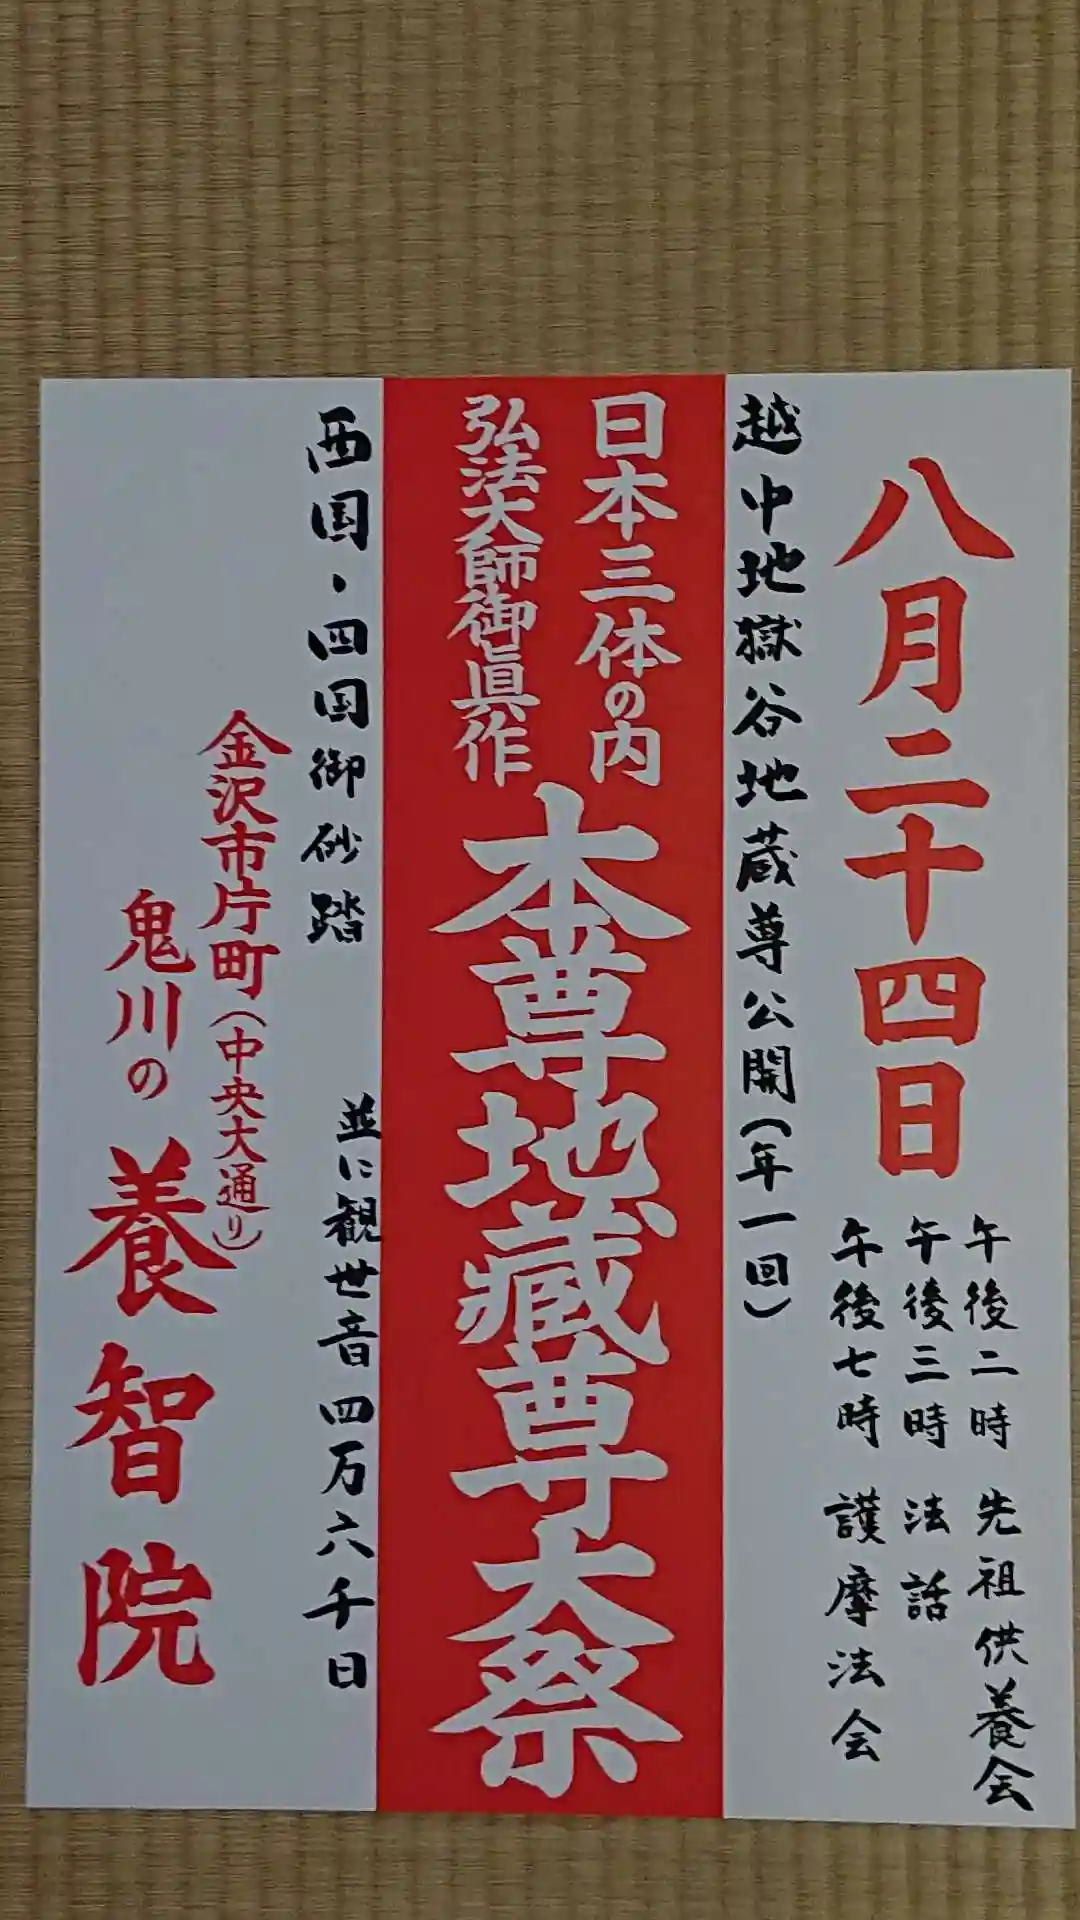 八月二十四日
午後二時 先祖供養会
午後三時 法話
午後七時 護摩法会
越中地獄谷地蔵尊公開(年一回)
日本三体の内
弘法大師御眞作
本尊地蔵尊大祭
西国・四国御砂踏
並に観世音四万六千日
金沢市片町(中央大通り)
鬼川の養智院